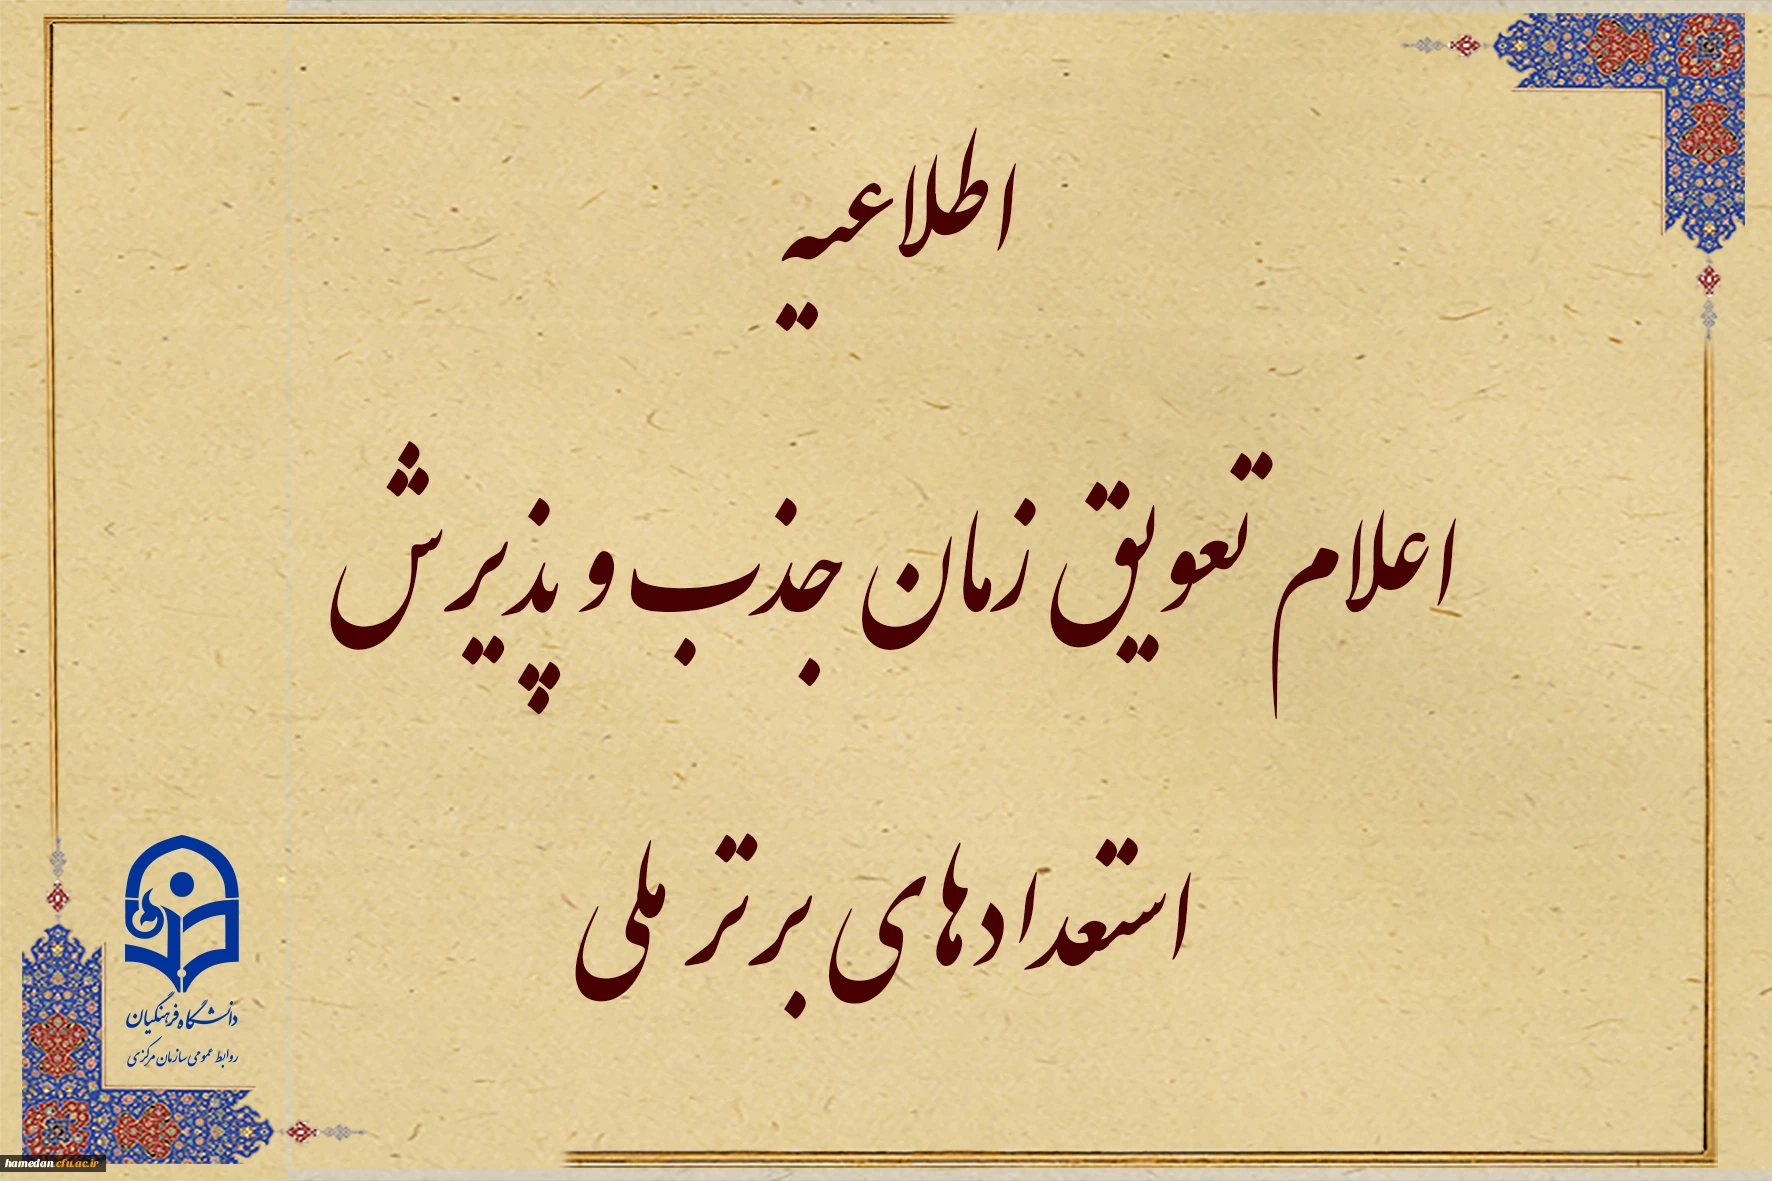 اطلاعیه
اعلام تعویق زمان جذب و پذیرش
استعدادهای برتر ملی
دانشگاه فرهنگیان
روابط عمومی سازمان مرکزی
hamedan.cfu.ac.ir